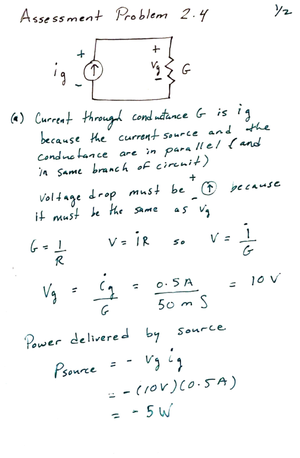 Assessment Problem 2.4 1/2
+ +
ig vg G
- -
(a) Current through conductance G is ig
because the current source and the
conductance are in parallel (and
in same branch of circuit)
voltage drop must be + ↑ - because
it must be the same as vg
G = 1/R V = iR so V = i/G
Vg = ig/G = 0.5A/50 mS = 10 V
Power delivered by source
Psource = - vg ig
= - (10V)(0.5A)
= - 5W